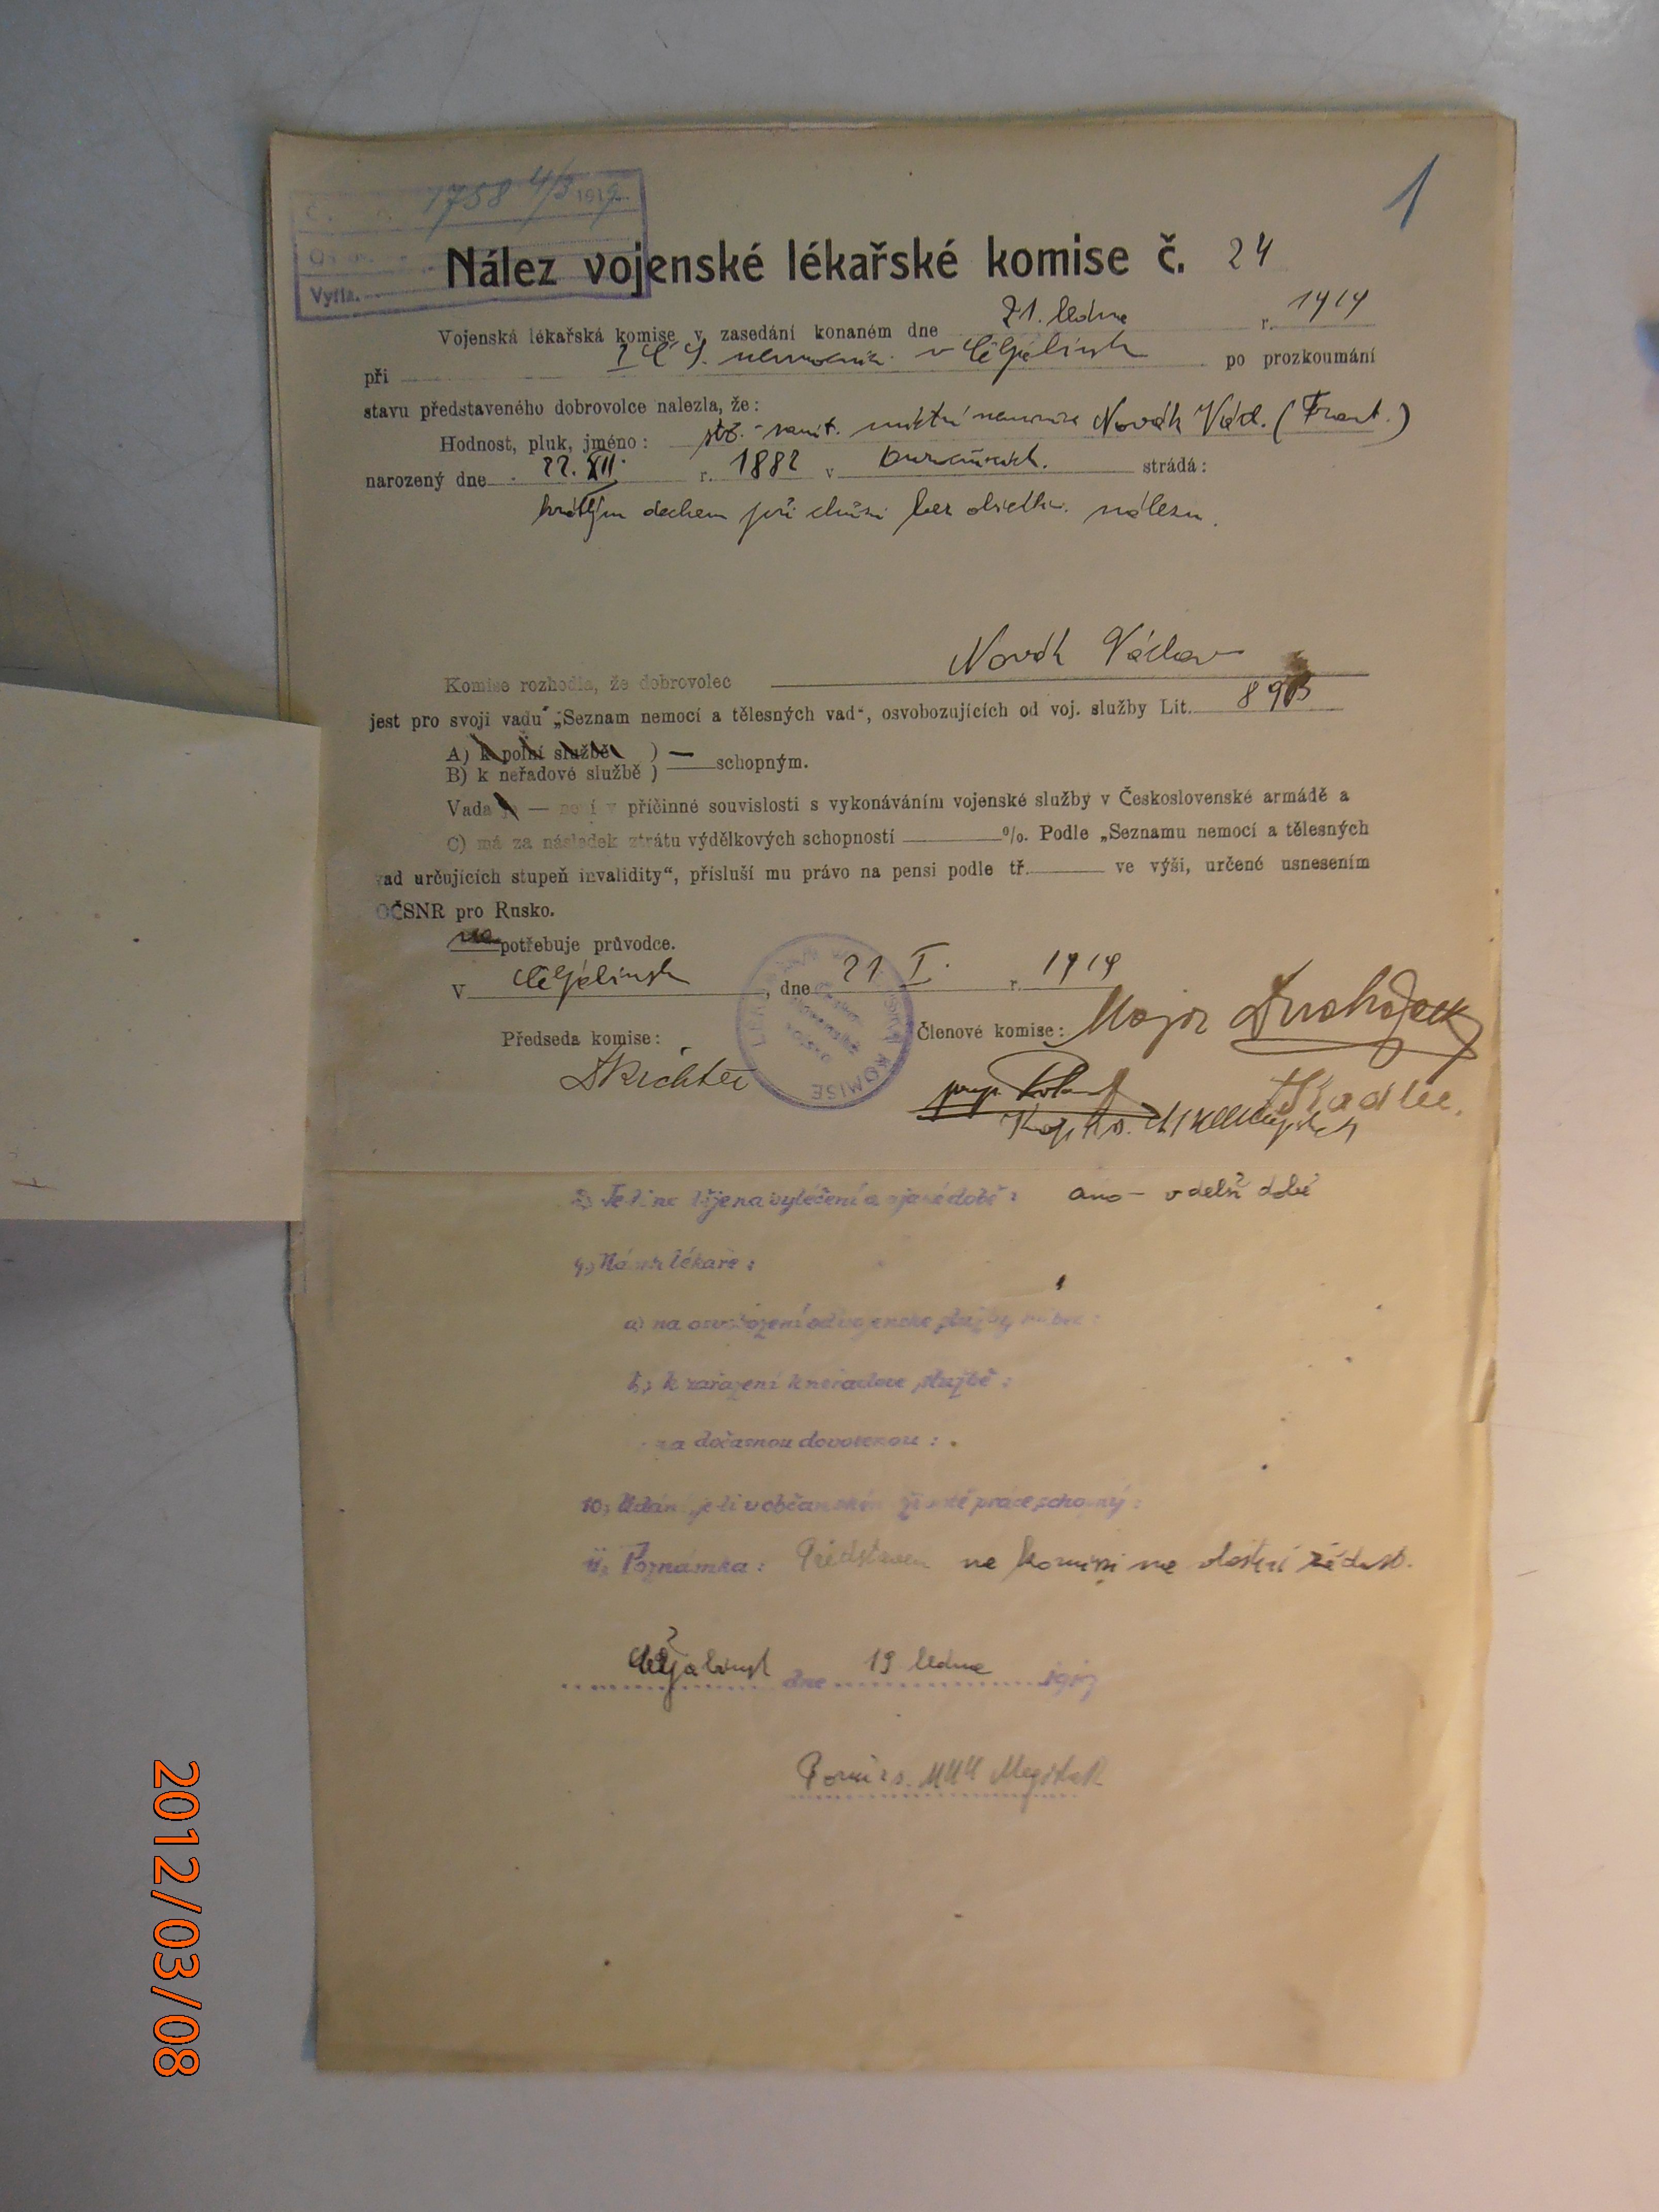 1758 4/3 1919
1
Vyříz.
Nález vojenské lékařské komise č. 24
Vojenská lékařská komise v zasedání konaném dne 21. ledna r. 1919
při I ČS. v Čeljabinsk po prozkoumání
stavu představeného dobrovolce nalezla, že:
Hodnost, pluk, jméno: Novák Václ. (Frant.)
narozený dne 22. XII. r. 1882 v strádá:
krátkým dechem při chůzi bez nálezu.
Komise rozhodla, že dobrovolec Novák Václav
jest pro svoji vadu „Seznam nemocí a tělesných vad“, osvobozujících od voj. služby Lit. 89B
A) k polní službě )
B) k neřadové službě ) — schopným.
Vada je — není v příčinné souvislosti s vykonáváním vojenské služby v Československé armádě a
C) má za následek ztrátu výdělkových schopností %. Podle „Seznamu nemocí a tělesných
vad určujících stupeň invalidity“, přísluší mu právo na pensi podle tř. ve výši, určené usnesením
OČSNR pro Rusko.
ne potřebuje průvodce.
V Čeljabinsk, dne 21 I. r. 1919
Předseda komise: Členové komise: Major
Richter
Kadlec.
KOMISE
ano – v delší době
9, Návrh lékaře:
a) na osvobození od vojenské služby vůbec:
b, k zařazení k neřadové službě:
za dočasnou dovolenou:
10, Udání je-li v občanském životě práce schopný:
11, Poznámka: Představen ke komisi na vlastní žádost.
Čeljabinsk dne 19 ledna 191
2012/03/08